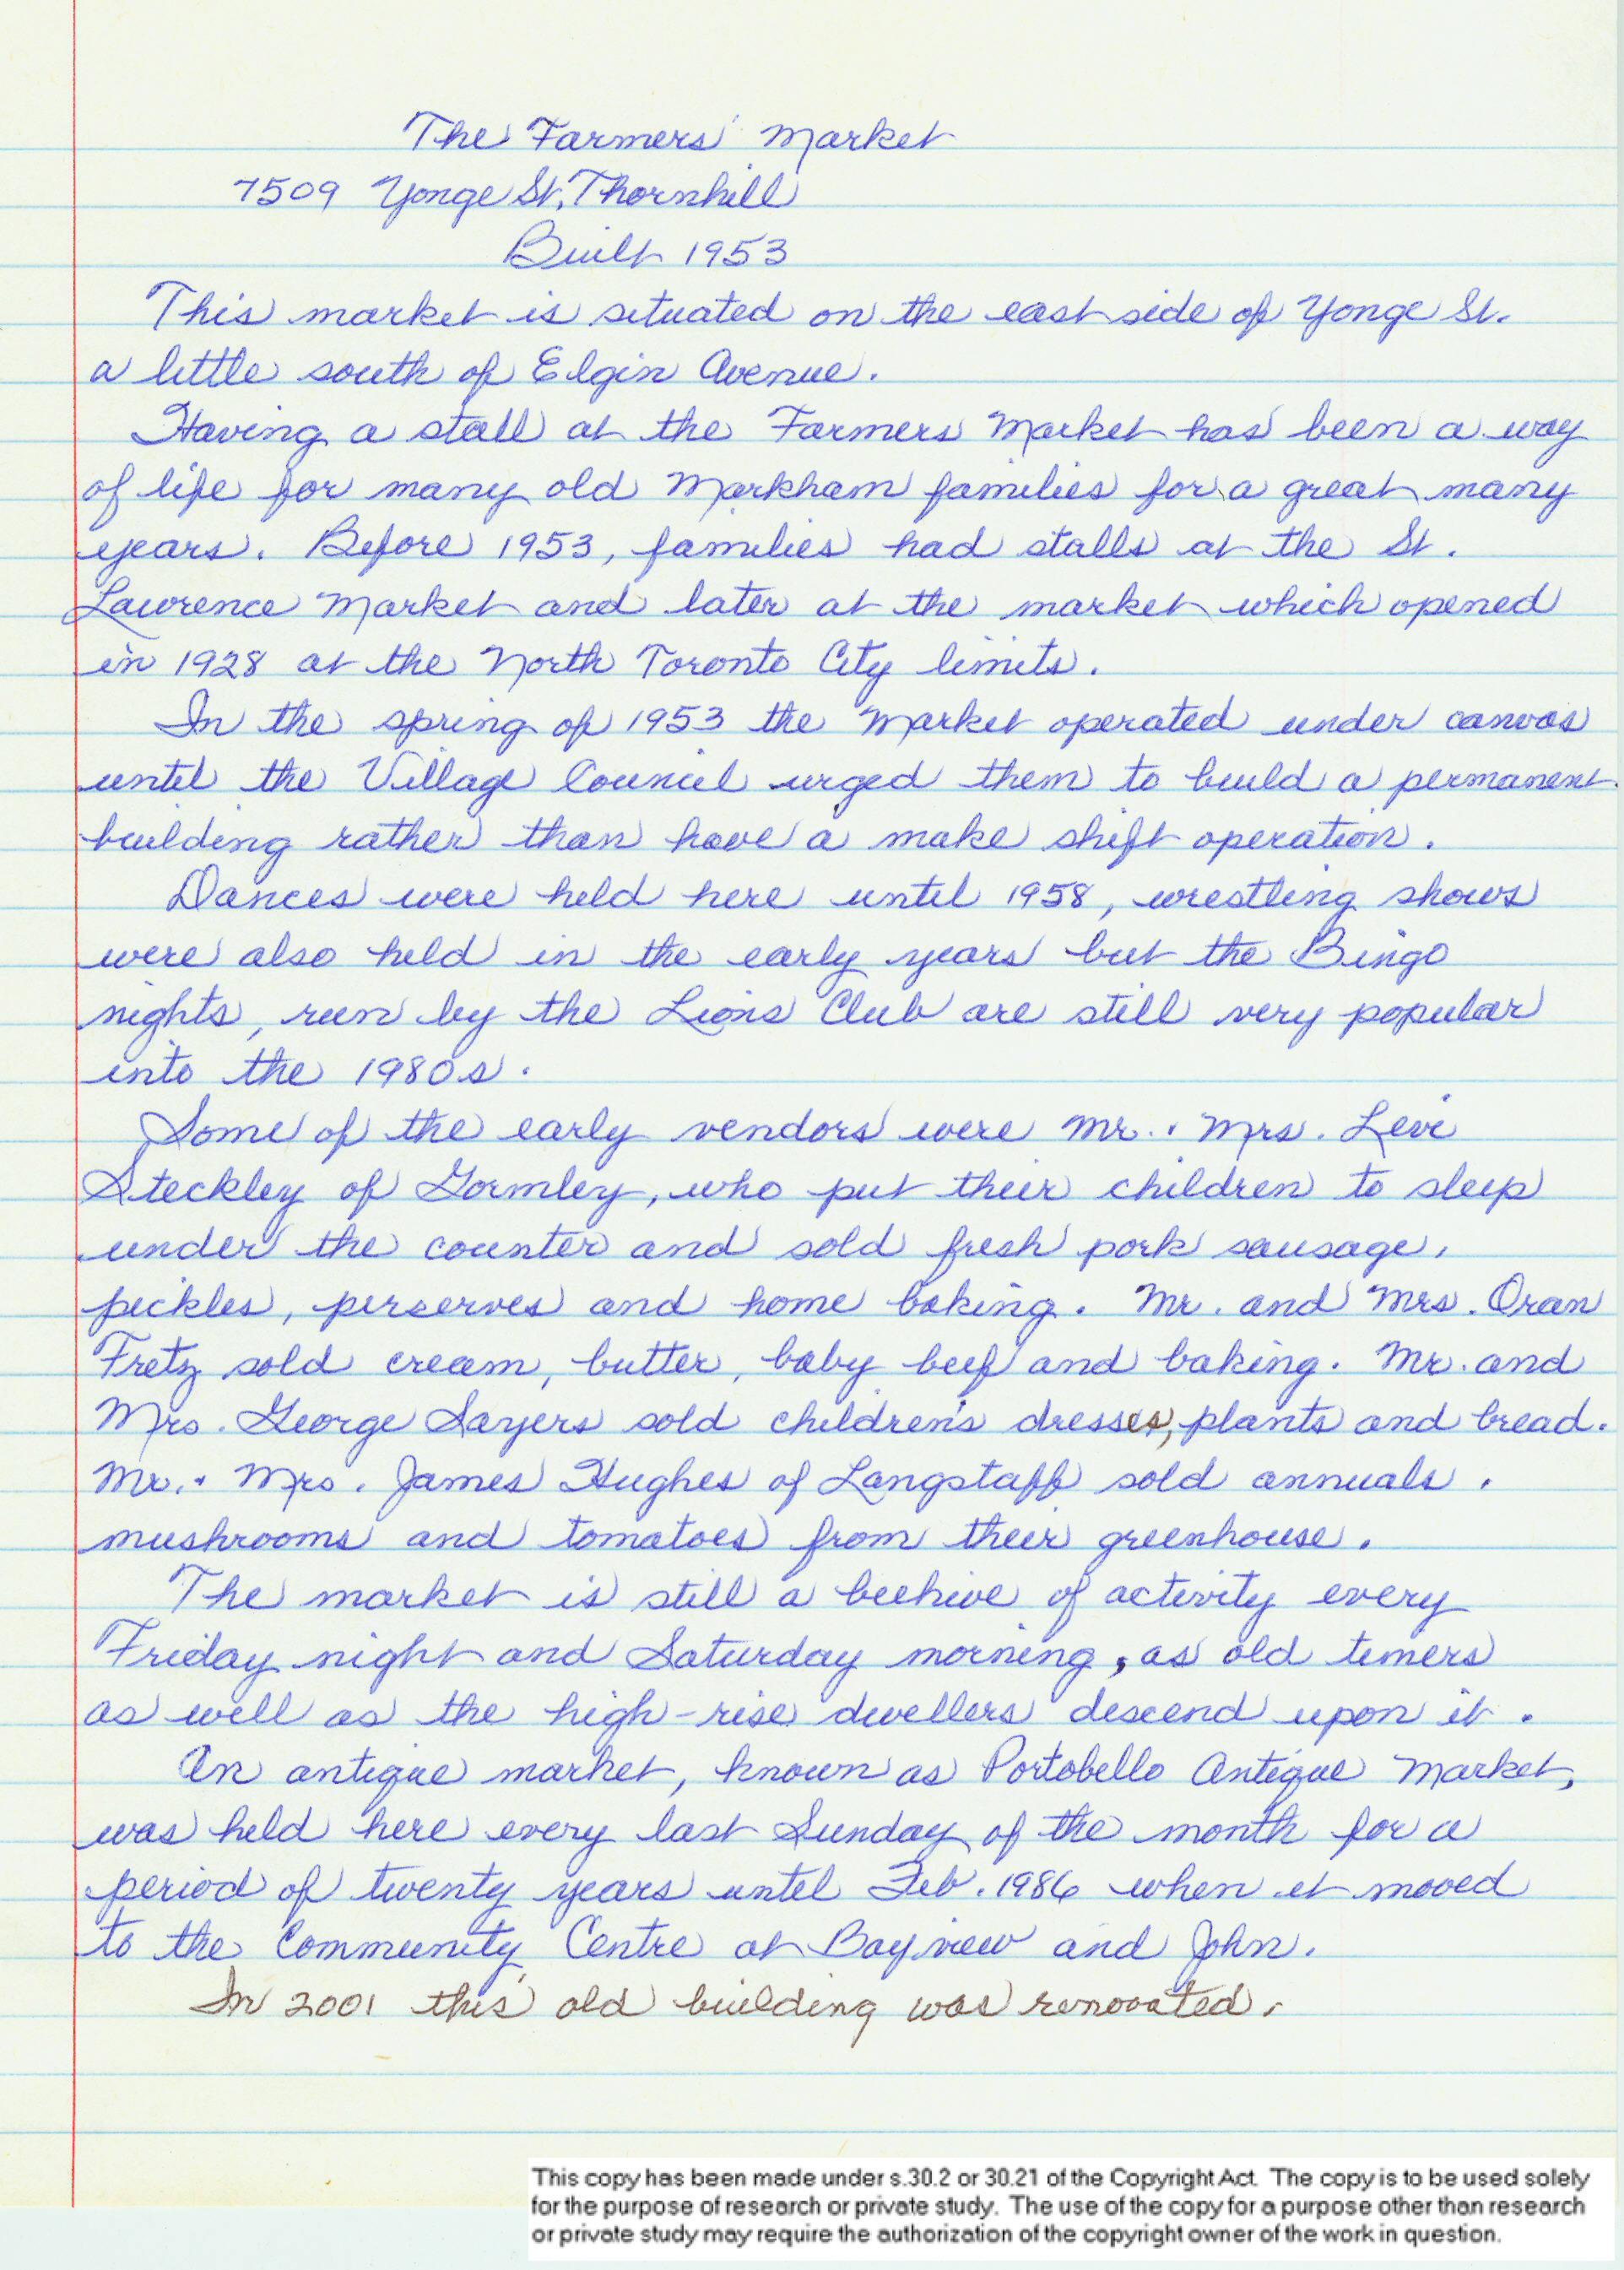 The Farmers' Market
7509 Yonge St, Thornhill
Built 1953
This market is situated on the east side of Yonge St.
a little south of Elgin Avenue.
Having a stall at the Farmers Market has been a way
of life for many old Markham families for a great many
years. Before 1953, families had stalls at the St.
Lawrence Market and later at the market which opened
in 1928 at the North Toronto City limits.
In the spring of 1953 the Market operated under canvas
until the Village Council urged them to build a permanent
building rather than have a make shift operation.
Dances were held here until 1958, wrestling shows
were also held in the early years but the Bingo
nights, run by the Lions Club are still very popular
into the 1980s.
Some of the early vendors were Mr. + Mrs. Levi
Steckley of Gormley, who put their children to sleep
under the counter and sold fresh pork sausage,
pickles, perserves and home baking. Mr. and Mrs. Oran
Fretz sold cream, butter, baby beef and baking. Mr. and
Mrs. George Sayers sold children's dresses, plants and bread.
Mr. + Mrs. James Hughes of Langstaff sold annuals,
mushrooms and tomatoes from their greenhouse.
The market is still a beehive of activity every
Friday night and Saturday morning, as old timers
as well as the high-rise dwellers descend upon it.
An antique market, known as Portobello Antique Market,
was held here every last Sunday of the month for a
period of twenty years until Feb. 1986 when it moved
to the Community Centre at Bayview and John.
In 2001 this old building was renovated.
This copy has been made under s.30.2 or 30.21 of the Copyright Act. The copy is to be used solely
for the purpose of research or private study. The use of the copy for a purpose other than research
or private study may require the authorization of the copyright owner of the work in question.